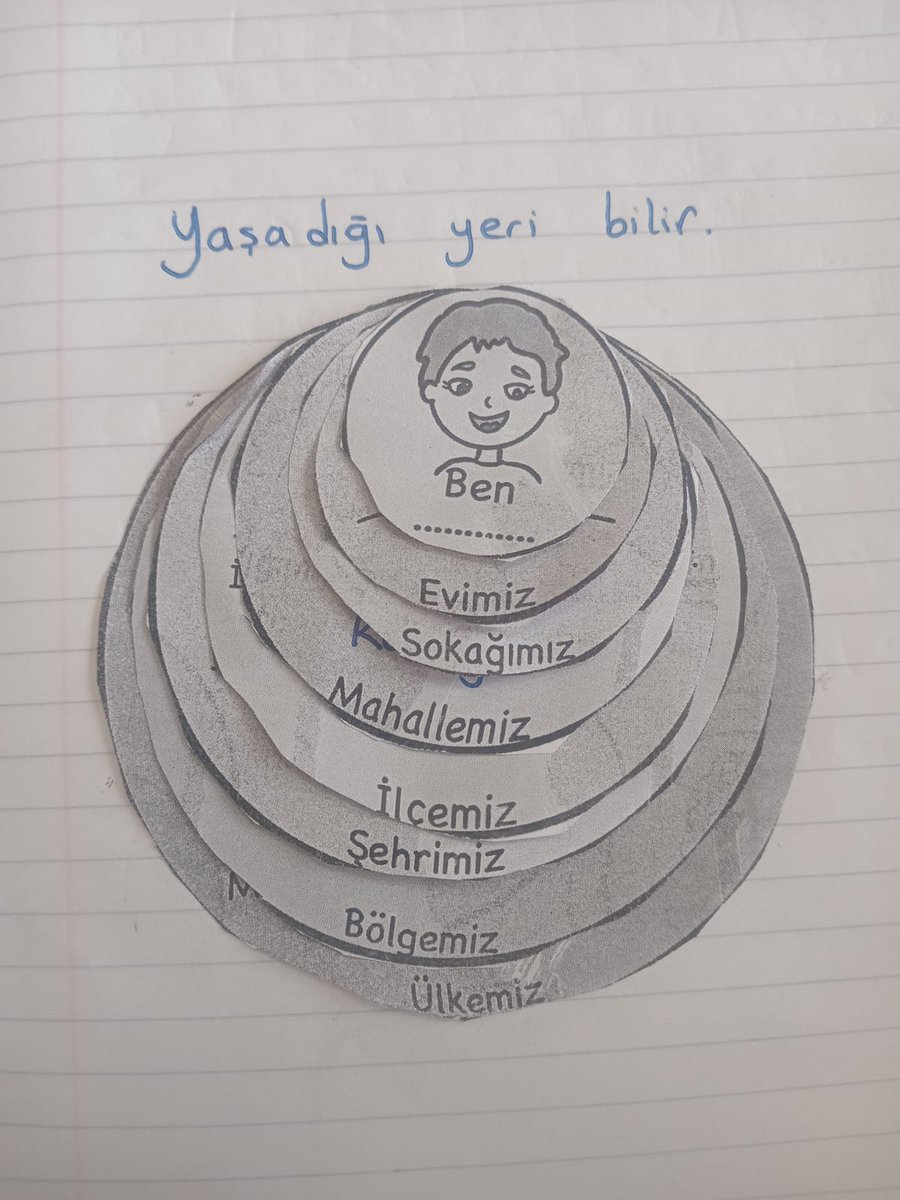 Yaşadığı yeri bilir.
Ben
..............
Evimiz
Sokağımız
Mahallemiz
İlçemiz
Şehrimiz
Bölgemiz
Ülkemiz